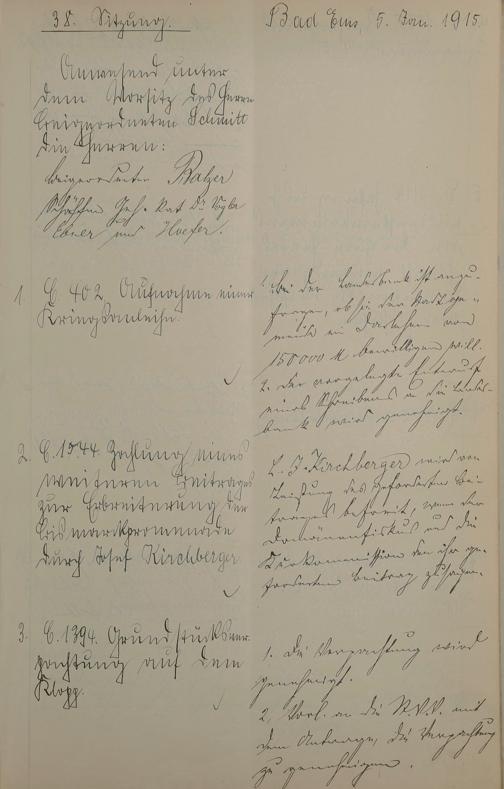 38. Sitzung.
Bad Ems, 5. Jan. 1915.
Anwesend unter
dem Vorsitz des Herrn
Beigeordneten Schmitt
die Herren:
Beigeordneter Balzer
Schöffen Geh. Rat Dr.
Ebner und Hoefer.
1. C. 402. Aufnahme einer
Kriegsanleihe.
1. Bei der Landesbank ist anzu-
fragen, ob sie der Stadtge-
meinde ein Darlehen von
150000 M bewilligen will.
2. Der vorgelegte Entwurf
eines Schreibens an die Landes-
bank wird genehmigt.
2. C. 1544. Zahlung eines
weiteren Beitrages
zur Erbreiterung der
Bismarkpromenade
durch Josef Kirchberger
C. J. Kirchberger wird von
Leistung des geforderten Bei-
trages befreit, wenn der
Domänenfiskus und die
Kurkommission den ihr ge-
forderten Beitrag zusagen.
3. C. 1394. Grundstücksver-
pachtung auf dem
Klopp.
1. Die Verpachtung wird
genehmigt.
2. Vorl. an die St.V.V. mit
dem Antrage, die Verpachtung
zu genehmigen.